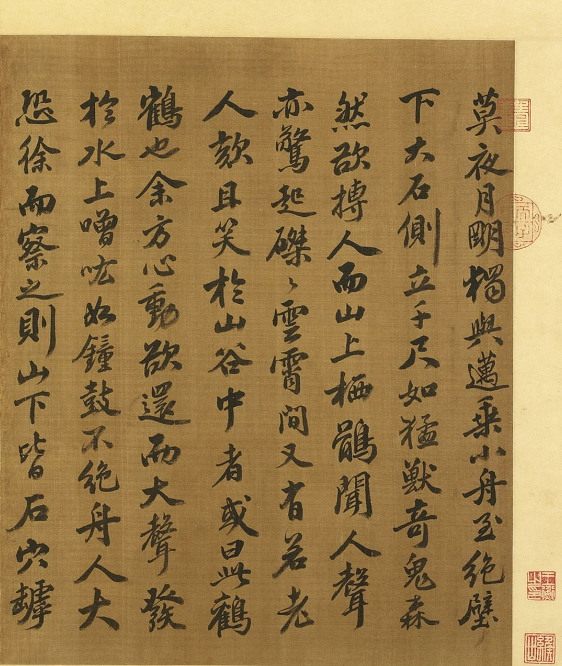 莫夜月明獨與邁乘小舟至絶壁
下大石側立千尺如猛獸奇鬼森
然欲搏人而山上栖鶻聞人聲
亦驚起磔〻雲霄間又有若老
人欬且笑於山谷中者或曰此鸛
鶴也余方心動欲還而大聲發
於水上噌吰如鐘鼓不絶舟人大
恐徐而察之則山下皆石穴罅